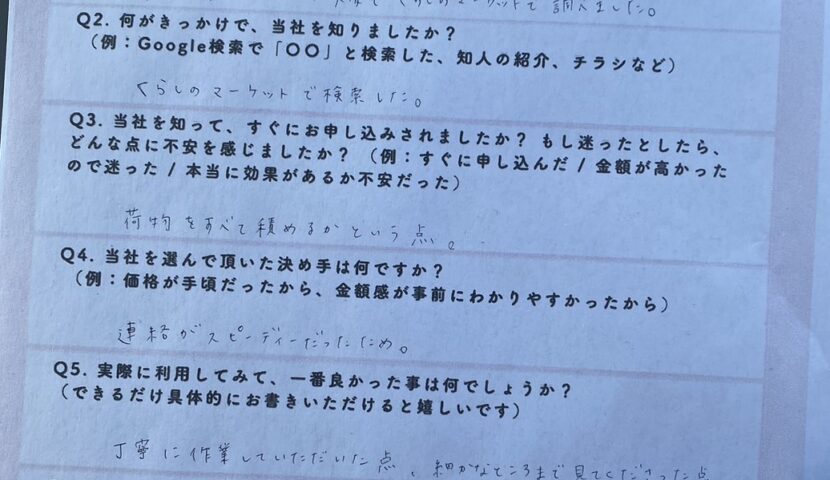 くらしのマーケットで調べました。
Q2. 何がきっかけで、当社を知りましたか？
（例：Google検索で「〇〇」と検索した、知人の紹介、チラシなど）
くらしのマーケットで検索した。
Q3. 当社を知って、すぐにお申し込みされましたか？ もし迷ったとしたら、
どんな点に不安を感じましたか？ （例：すぐに申し込んだ / 金額が高かった
ので迷った / 本当に効果があるか不安だった）
荷物をすべて積めるかという点。
Q4. 当社を選んで頂いた決め手は何ですか？
（例：価格が手頃だったから、金額感が事前にわかりやすかったから）
連絡がスピーディーだったため。
Q5. 実際に利用してみて、一番良かった事は何でしょうか？
（できるだけ具体的にお書きいただけると嬉しいです）
丁寧に作業していただいた点、細かなところまで見てくださった点